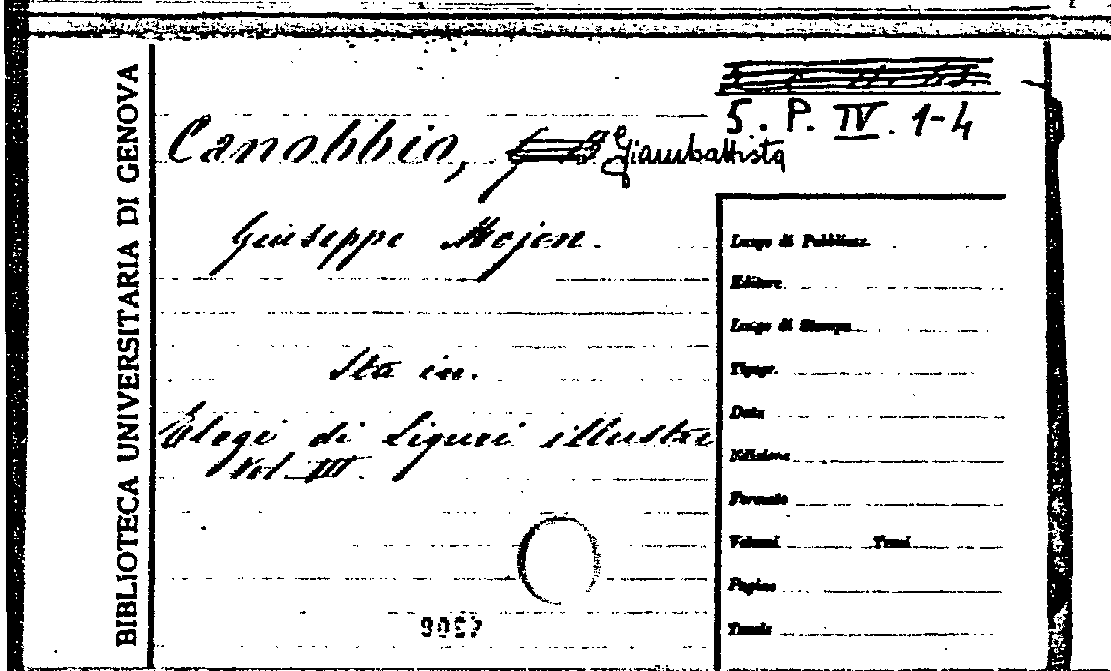 BIBLIOTECA UNIVERSITARIA DI GENOVA
5. P. IV. 1-4
Canobbio, Giambattista
Giuseppe Mojon.
Sta in.
Elogi di Liguri illustri
Vol III.
Luogo di Pubblicaz.
Editore
Luogo di Stampa
Tipogr.
Data
Edizione
Formato
Volumi Tomi
Pagine
Tavole